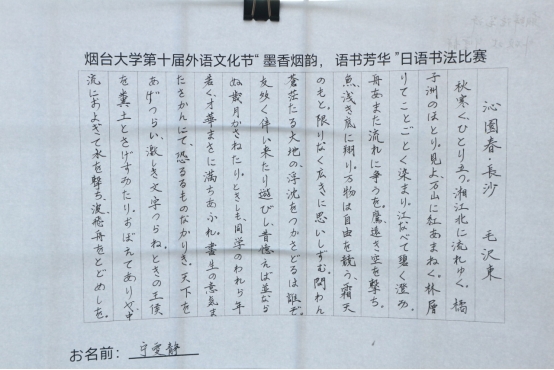 烟台大学第十届外语文化节“墨香烟韵，语书芳华”日语书法比赛
沁園春・長沙　毛沢東
秋寒く、ひとり立つ。湘江北に流れゆく。橘
子洲のほとり。見よ、万山に紅あまねく。林層
りてことごとく染まり。江なべて碧く澄み。
舟あまた流れに争うを。鷹遠き空を撃ち。
魚浅き底に翔り。万物は自由を競う、霜天
のもと。限りなく広きに思いしずむ。問わん
蒼茫たる大地の、浮沈をつかさどるは誰ぞ。
友数く伴い来たり遊びし。昔憶えば並なら
ぬ歳月かさねたり。ときしも、同学のわれら年
若く。才華まさに満ちあふれ。書生の意気ま
たさかんにて、恐るるものなかりき。天下を
あげつらい、激しき文字つらね。ときの王侯
を糞土とさげすみたり。おぼえてありや、中
流におよぎて水を撃ち、波飛舟をとどめしを。
お名前：守雯静